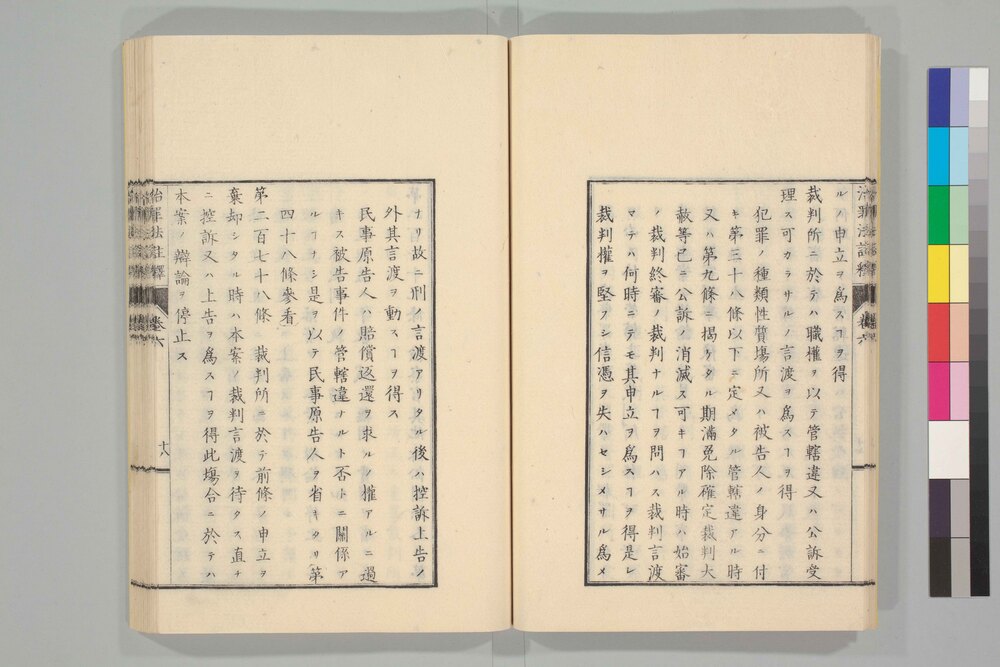 治罪法註釋 卷六
ルノ申立ヲ爲スヿヲ得
裁判所ニ於テハ職權ヲ以テ管轄違又ハ公訴受
理ス可カラサルノ言渡ヲ爲スヿヲ得
犯罪ノ種類性質塲所又ハ被告人ノ身分ニ付
キ第三十八條以下ニ定メタル管轄違アル時
又ハ第九條ニ揭ケタル期滿免除確定裁判大
赦等已ニ公訴ノ消滅ス可キヿアル時ハ始審
ノ裁判終審ノ裁判ナルヿヲ問ハス裁判言渡
マテハ何時ニテモ其申立ヲ爲スヿヲ得是レ
裁判權ヲ堅フシ信憑ヲ失ハセシメサル爲メ
ナリ故ニ刑ノ言渡アリタル後ハ控訴上告ノ
外其言渡ヲ動スヿヲ得ス
民事原告人ハ賠償返還ヲ求ルノ權アルニ過
キス被告事件ノ管轄違ナルト否トニ關係ア
ルヿナシ是ヲ以テ民事原告人ヲ省キタリ第
四十八條參看
第二百七十八條 裁判所ニ於テ前條ノ申立ヲ
棄却シタル時ハ本案ノ裁判言渡ヲ待タス直チ
ニ控訴又ハ上告ヲ爲スヿヲ得此塲合ニ於テハ
本案ノ辯論ヲ停止ス
治罪法註釋 卷六